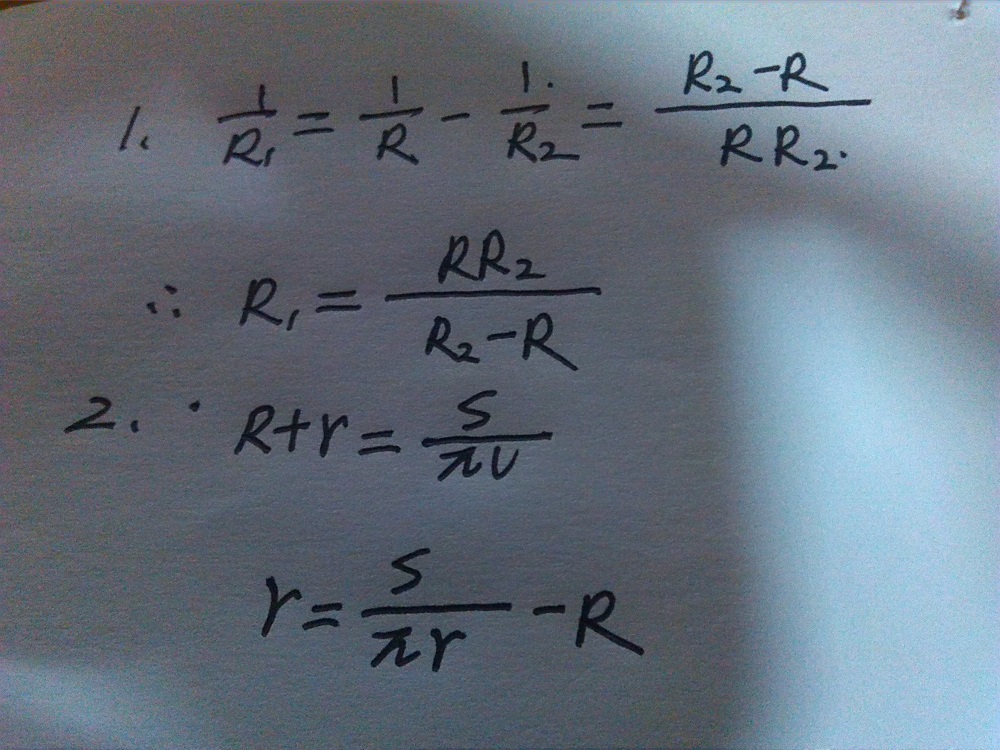 1. 1/R₁ = 1/R - 1/R₂ = (R₂-R)/(RR₂)
∴ R₁ = RR₂/(R₂-R)
2. R+r = S/(πU)
r = S/(πr) - R